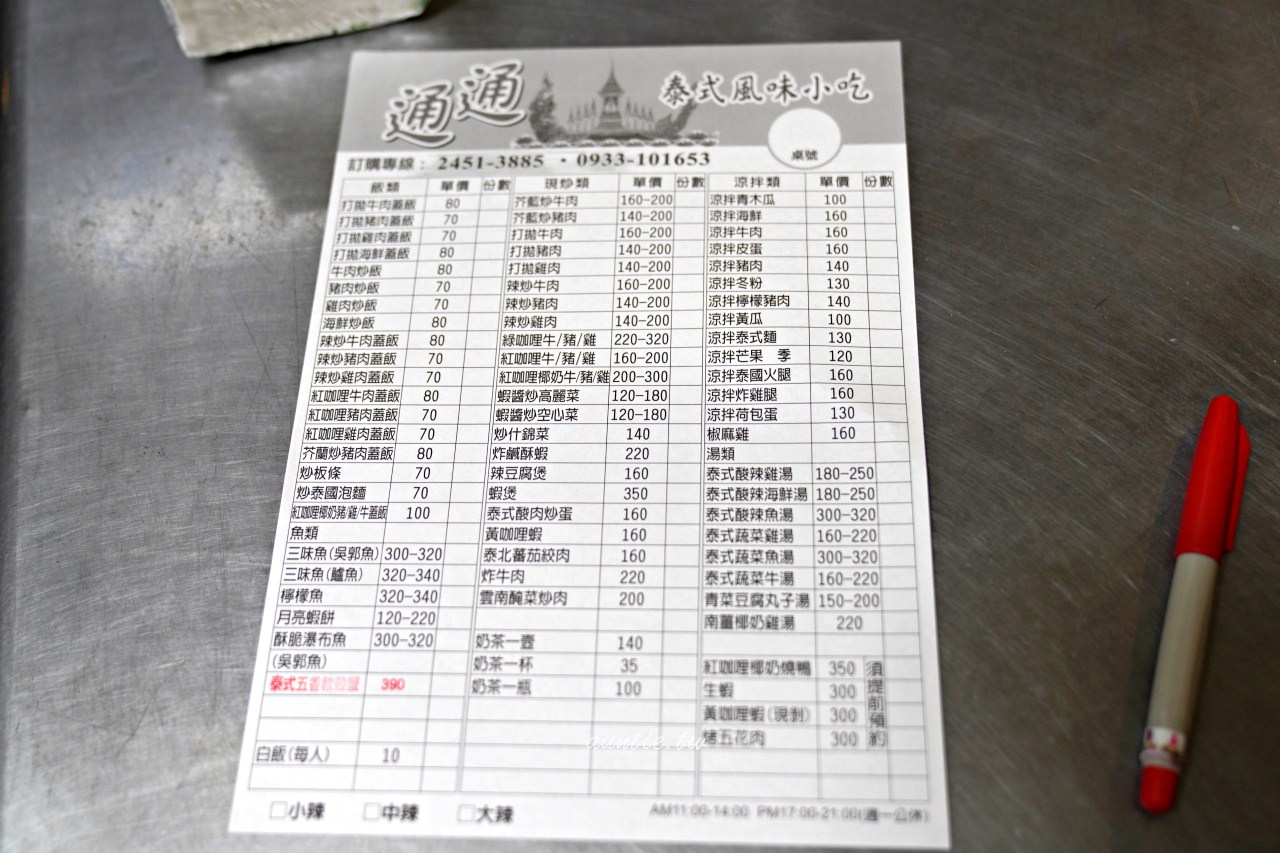 通通 泰式風味小吃
訂購專線： 2451-3885 ・0933-101653
桌號
飯類 單價 份數 現炒類 單價 份數 涼拌類 單價 份數
打拋牛肉蓋飯 80 芥藍炒牛肉 160-200 涼拌青木瓜 100
打拋豬肉蓋飯 70 芥藍炒豬肉 140-200 涼拌海鮮 160
打拋雞肉蓋飯 70 打拋牛肉 160-200 涼拌牛肉 160
打拋海鮮蓋飯 80 打拋豬肉 140-200 涼拌皮蛋 160
牛肉炒飯 80 打拋雞肉 140-200 涼拌豬肉 140
豬肉炒飯 70 辣炒牛肉 160-200 涼拌冬粉 130
雞肉炒飯 70 辣炒豬肉 140-200 涼拌檸檬豬肉 140
海鮮炒飯 80 辣炒雞肉 140-200 涼拌黃瓜 100
辣炒牛肉蓋飯 80 綠咖哩牛/豬/雞 220-320 涼拌泰式麵 130
辣炒豬肉蓋飯 70 紅咖哩牛/豬/雞 160-200 涼拌芒果 季 120
辣炒雞肉蓋飯 70 紅咖哩椰奶牛/豬/雞 200-300 涼拌泰國火腿 160
紅咖哩牛肉蓋飯 80 蝦醬炒高麗菜 120-180 涼拌炸雞腿 160
紅咖哩豬肉蓋飯 70 蝦醬炒空心菜 120-180 涼拌荷包蛋 130
紅咖哩雞肉蓋飯 70 炒什錦菜 140 椒麻雞 160
芥蘭炒豬肉蓋飯 80 炸鹹酥蝦 220 湯類
炒板條 70 辣豆腐煲 160 泰式酸辣雞湯 180-250
炒泰國泡麵 70 蝦煲 350 泰式酸辣海鮮湯 180-250
紅咖哩椰奶豬/雞/牛蓋飯 100 泰式酸肉炒蛋 160 泰式酸辣魚湯 300-320
魚類 黃咖哩蝦 160 泰式蔬菜雞湯 160-220
三味魚(吳郭魚) 300-320 泰北蕃茄絞肉 160 泰式蔬菜魚湯 300-320
三味魚(鱸魚) 320-340 炸牛肉 220 泰式蔬菜牛湯 160-220
檸檬魚 320-340 雲南醃菜炒肉 200 青菜豆腐丸子湯 150-200
月亮蝦餅 120-220 南薑椰奶雞湯 220
酥脆瀑布魚 300-320 奶茶一壺 140
(吳郭魚) 奶茶一杯 35 紅咖哩椰奶燒鴨 350 須提前預約
泰式五香軟殼蟹 390 奶茶一瓶 100 生蝦 300
黃咖哩蝦(現剝) 300
烤五花肉 300
白飯(每人) 10
auntie.tw
□小辣 □中辣 □大辣 AM11:00-14:00 PM17:00-21:00(週一公休)